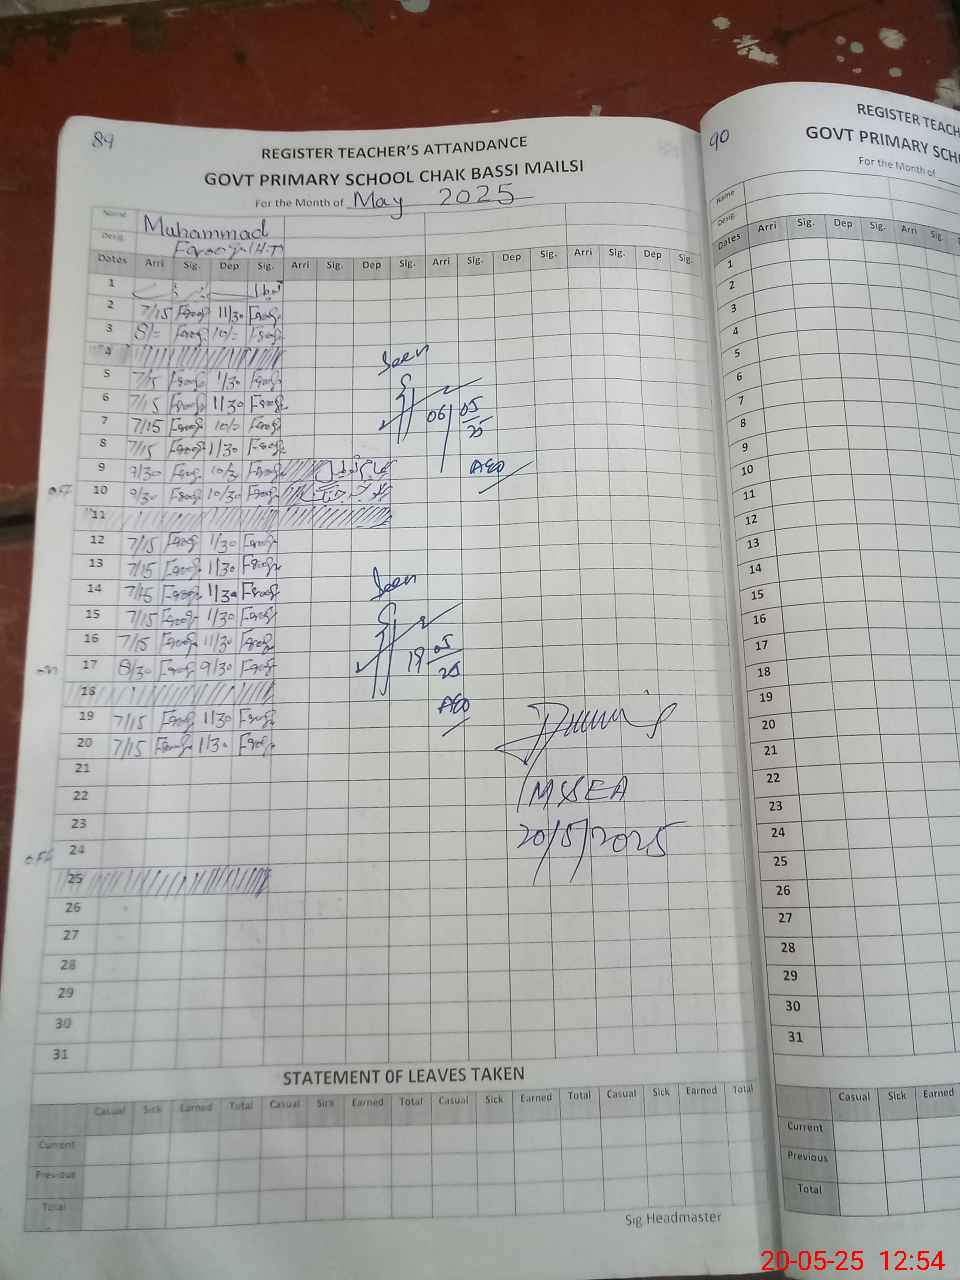 89
REGISTER TEACHER'S ATTANDANCE
GOVT PRIMARY SCHOOL CHAK BASSI MAILSI
For the Month of May 2025
Name Muhammad
Desig. Farooq (H.T)
Dates Arri Sig. Dep Sig. Arri Sig. Dep Sig. Arri Sig. Dep Sig. Arri Sig. Dep Sig.
1
2 7/15 Farooq 11/30 Farooq
3 8/= Farooq 10/= Farooq
4
Seen
5 7/15 Farooq 1/30 Farooq
6 7/15 Farooq 11/30 Farooq 06/05/25
7 7/15 Farooq 10/0 Farooq
8 7/15 Farooq 1/30 Farooq
AEO
9 9/30 Farooq 10/30 Farooq
OFF 10 9/30 Farooq 10/30 Farooq
11
12 7/15 Farooq 1/30 Farooq
13 7/15 Farooq 1/30 Farooq
Seen
14 7/15 Farooq 1/30 Farooq
15 7/15 Farooq 1/30 Farooq
16 7/15 Farooq 11/30 Farooq
17 8/30 Farooq 9/30 Farooq 19/05/25
18
AEO
19 7/15 Farooq 1/30 Farooq
20 7/15 Farooq 1/30 Farooq
21
22 MSEA
23
20/5/2025
OFF 24
25
26
27
28
29
30
31
STATEMENT OF LEAVES TAKEN
Casual Sick Earned Total Casual Sick Earned Total Casual Sick Earned Total Casual Sick Earned Total
Current
Previous
Total
Sig Headmaster
90
REGISTER TEACH
GOVT PRIMARY SCH
For the Month of
Name
Desig.
Dates Arri Sig. Dep Sig. Arri Sig.
1
2
3
4
5
6
7
8
9
10
11
12
13
14
15
16
17
18
19
20
21
22
23
24
25
26
27
28
29
30
31
Casual Sick Earned
Current
Previous
Total
20-05-25 12:54